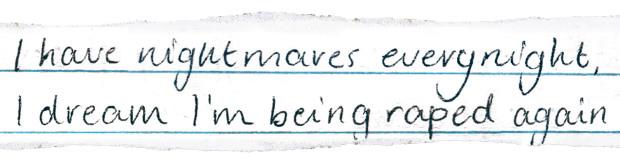 I have nightmares everynight,
I dream I'm being raped again